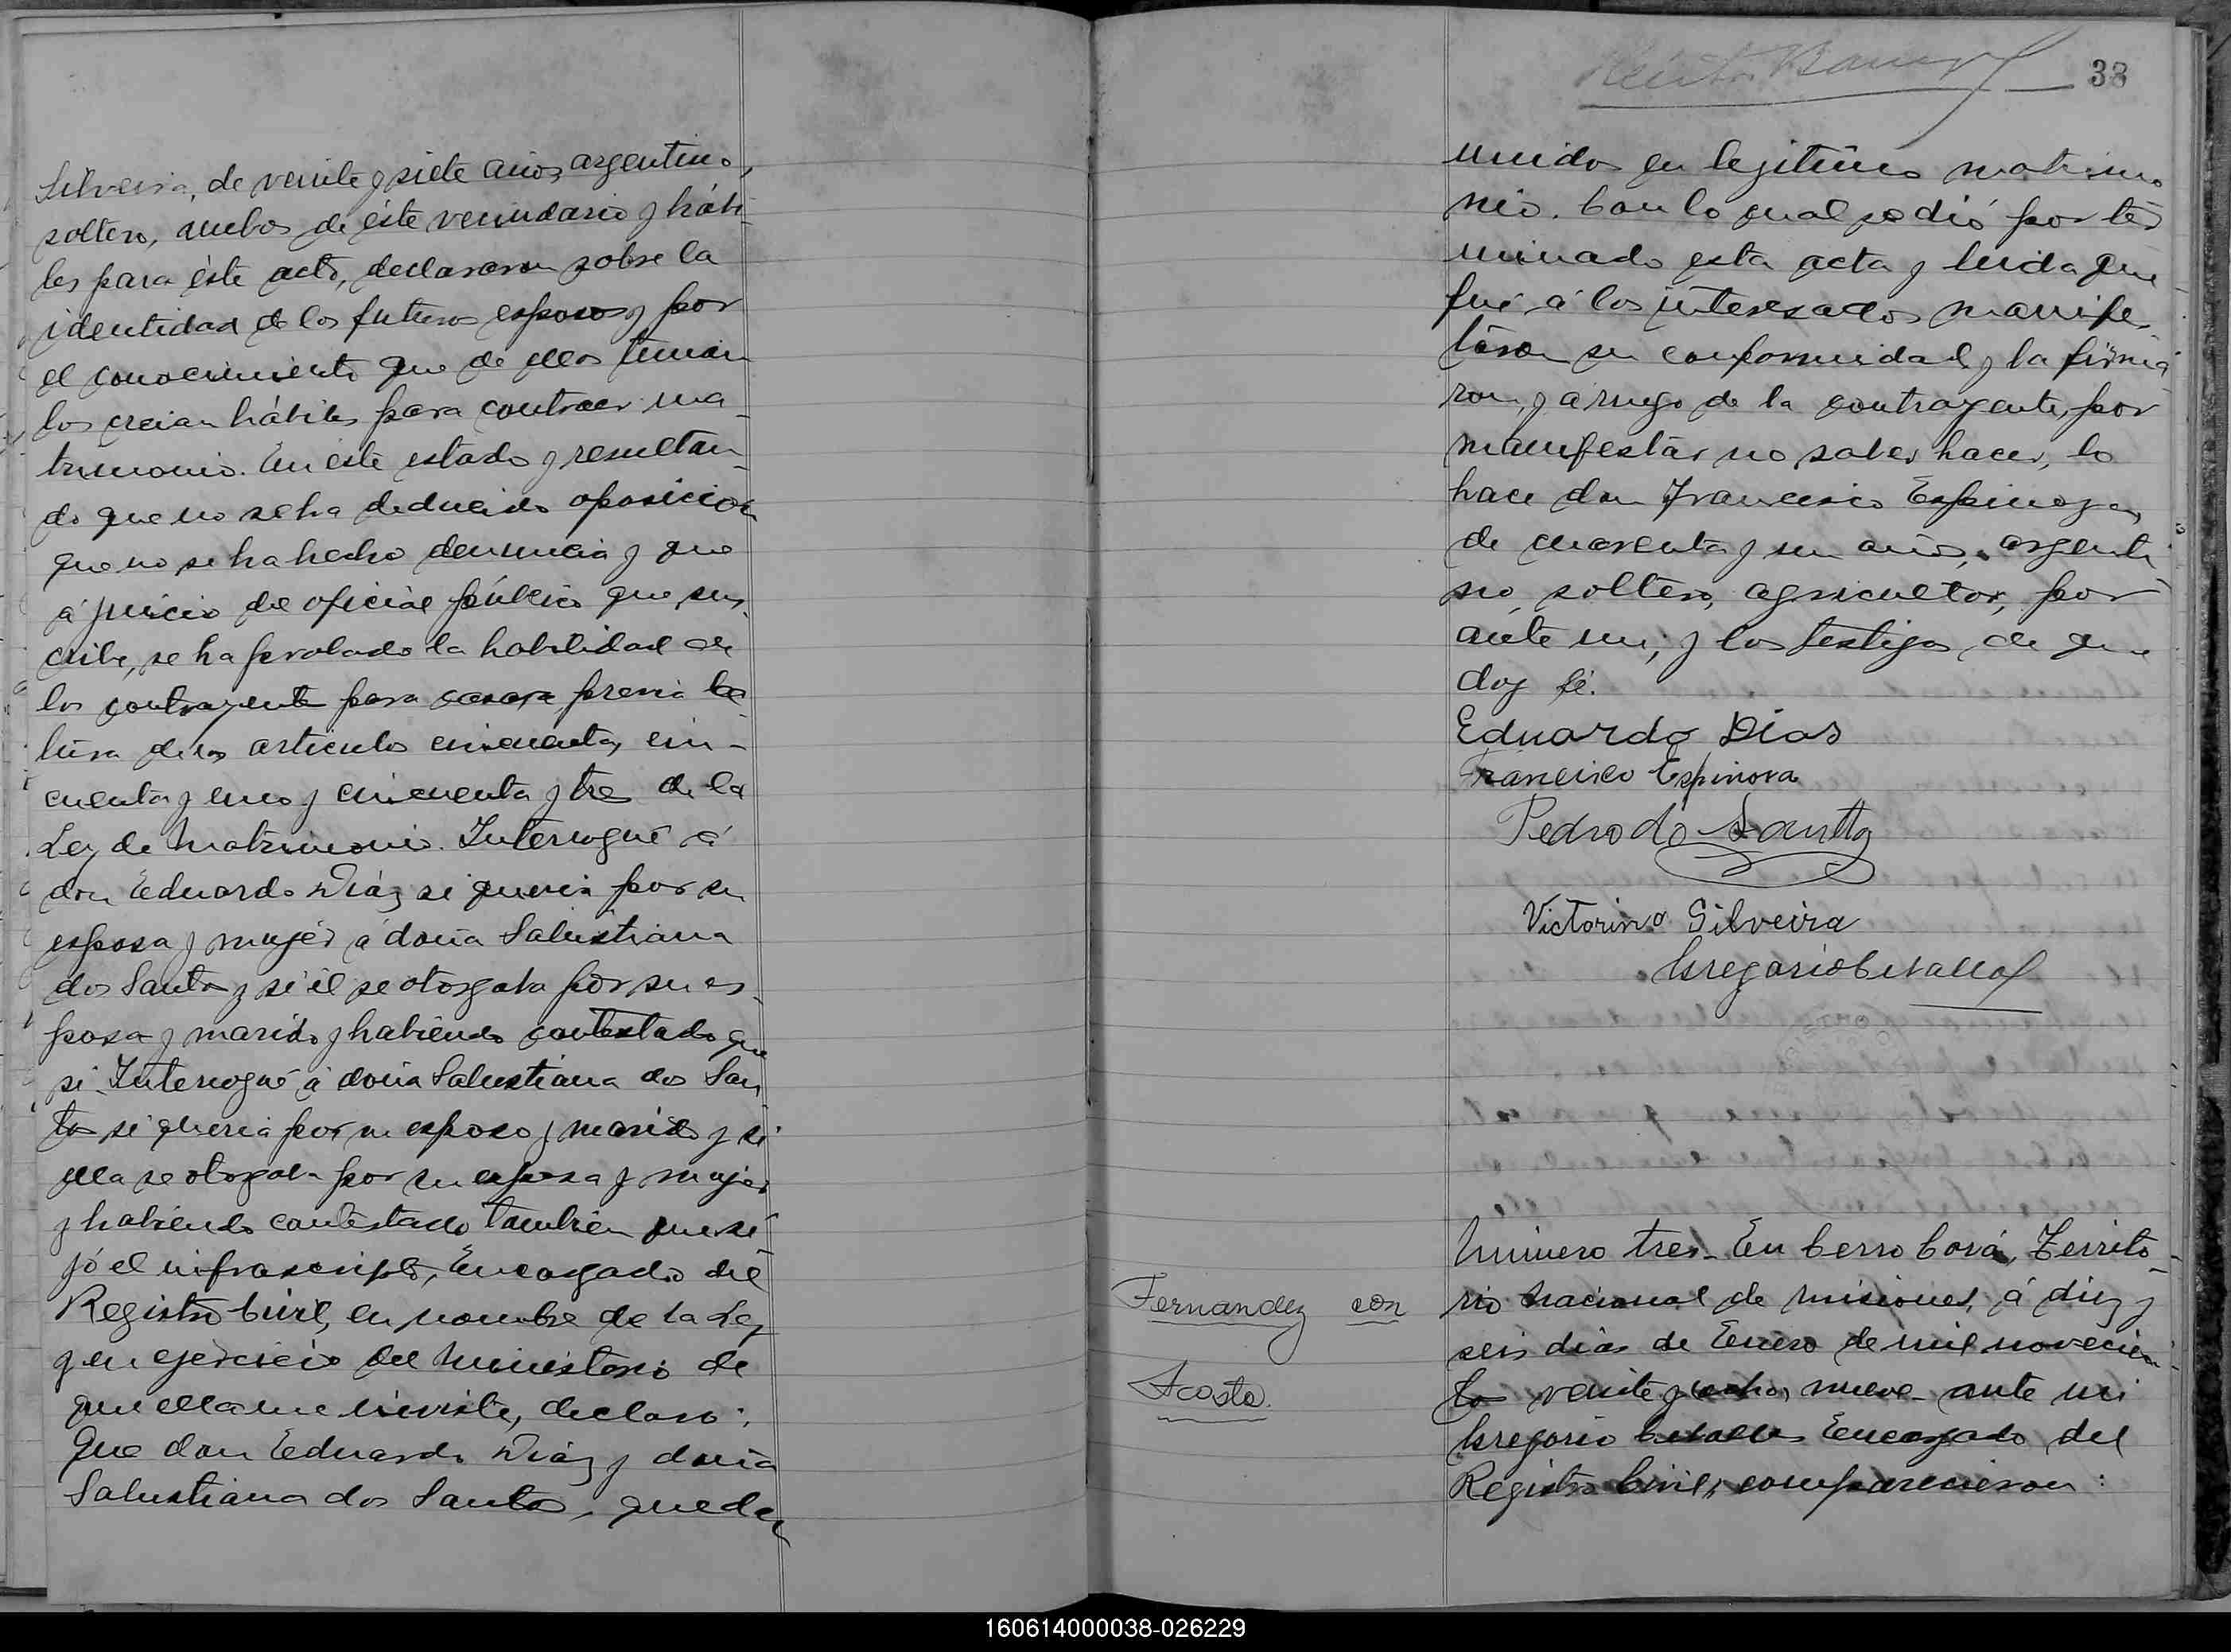 Silveira, de veinte y siete años, argentino,
soltero, ambos de éste vecindario y hábi-
les para éste acto, declararon sobre la
identidad de los futuros esposos y por
el conocimiento que de ellos tenian
los creian hábiles para contraer ma-
trimonio. En éste estado y resultan-
do que no se ha deducido oposicion
que no se ha hecho denuncia y que
á juicio del oficial público que sus-
cribe, se ha probado la habilidad de
los contrayente para casarse, previa lec-
tura de los articulos cincuenta, cin-
cuenta y uno y cincuenta y tres de la
Ley de Matrimonio. Interrogué á
don Eduardo Diáz si queria por su
esposa y mujér á doña Salustiana
dos Santos y si él se otorgaba por su es-
poso y marido y habiendo contestado que
si. Interrogué á doña Salustiana dos San
tos si queria por su esposo y marido y si
ella se otorgaba por su esposa y mujer
y habiendo contestado tambien que si
yó el infrascripto, Encargado del
Registro Civil, en nombre de la Ley
y en ejercicio del Ministerio de
que ella me inviste, declaro:
Que don Eduardo Diáz y doña
Salustiana dos Santos, quedan
38
unidos en legitimo matrimo
nio. Con lo qual se dió por tér
minado esta acta y leida que
fué á los interesados manifes
táron su conformidad y la firma
ron, y á ruego de la contrayente, por
manifestár no saber hacer, lo
hace don Francisco Espinoza,
de cuarenta y un años, argenti
no, soltero, agricultor, por
ante mi, y los testigos de que
doy fé.
Eduardo Dias
Francisco Espinosa
Pedro do Santto
Victorino Silveira
Gregorio
Número tres. En Cerro Corá, Territo-
rio Nacional de Misiones, á diez y
Fernandez con
seis dias de Enero de mil novecien-
Acosta.
tos veinte y ocho, nueve ante mi
Gregorio Encargado del
Registro Civil, comparecieron:
160614000038-026229